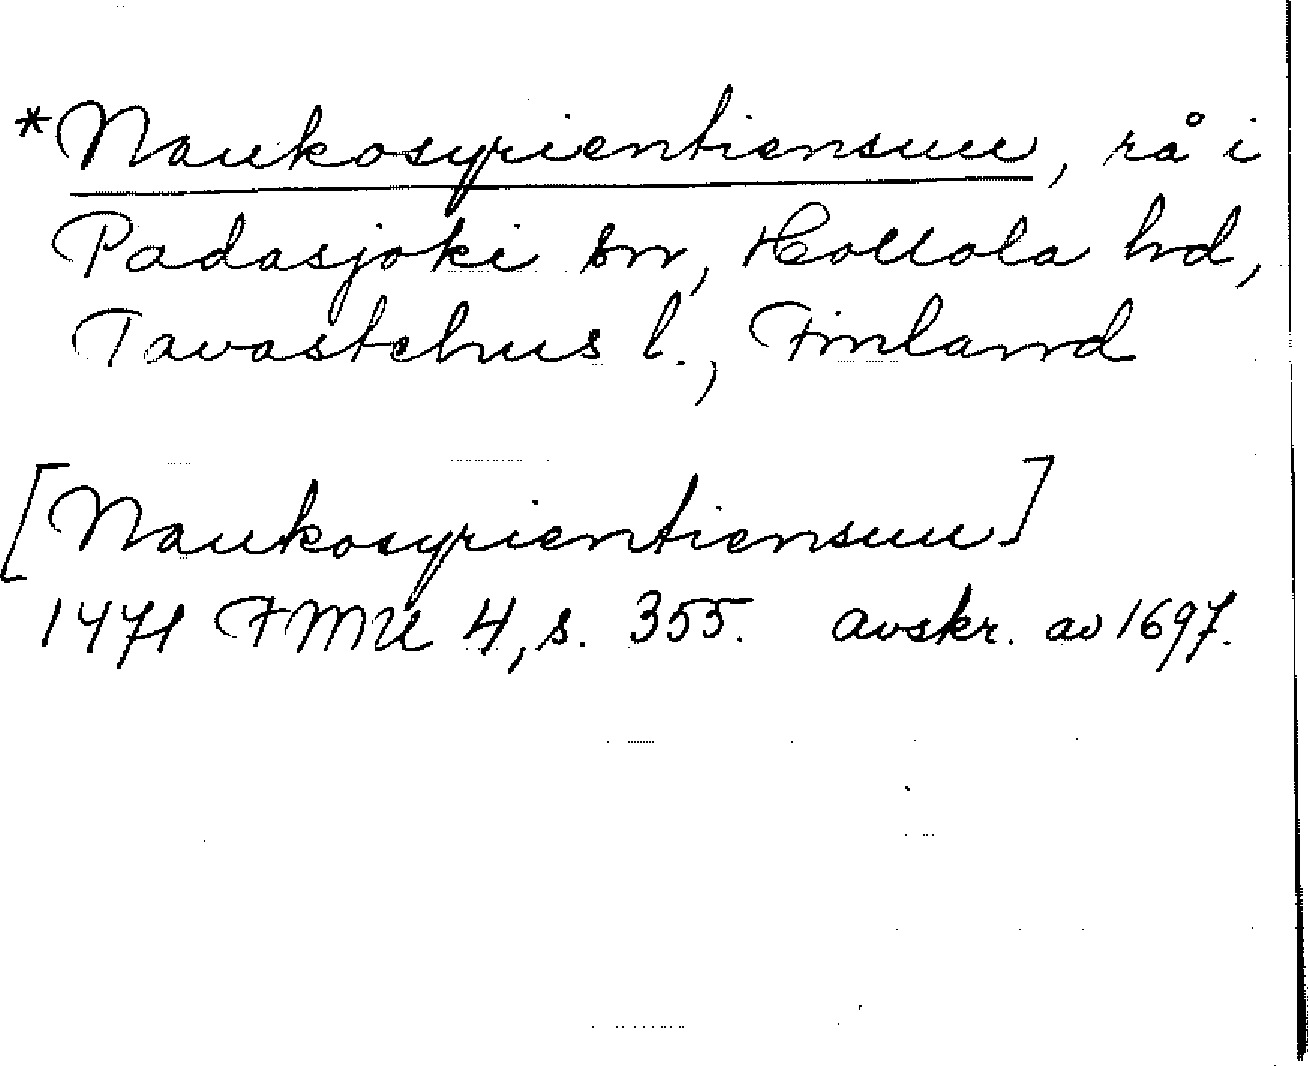 *Naukosyrientiensuu, rå i
Padasjoki sn, Hollola hd,
Tavastehus l., Finland
[Naukosyrientiensuu]
1471 FMU 4, s. 355. avskr. av 1697.